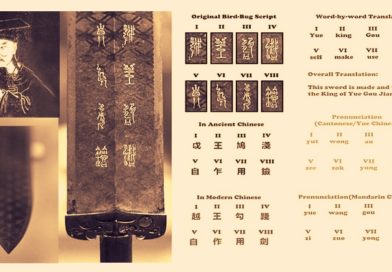 Original Bird-Bug Script
I II III IV
V VI VII VIII
In Ancient Chinese
I II III IV
戉 王 鳩 淺
V VI VII VIII
自 乍 用 鐱
In Modern Chinese
I II III IV
越 王 勾 踐
V VI VII VIII
自 作 用 劍
Word-by-word Trans
I II III
Yue king Gou
V VI VII
self make use
Overall Translation:
This sword is made and
the King of Yue Gou Jian
Pronunciation
(Cantonese/Yue Chine
I II III
yut wong au
V VI VII
zee zok yung
Pronunciation(Mandarin C
I II III
yue wang gou
V VI VII
zi zuo yong